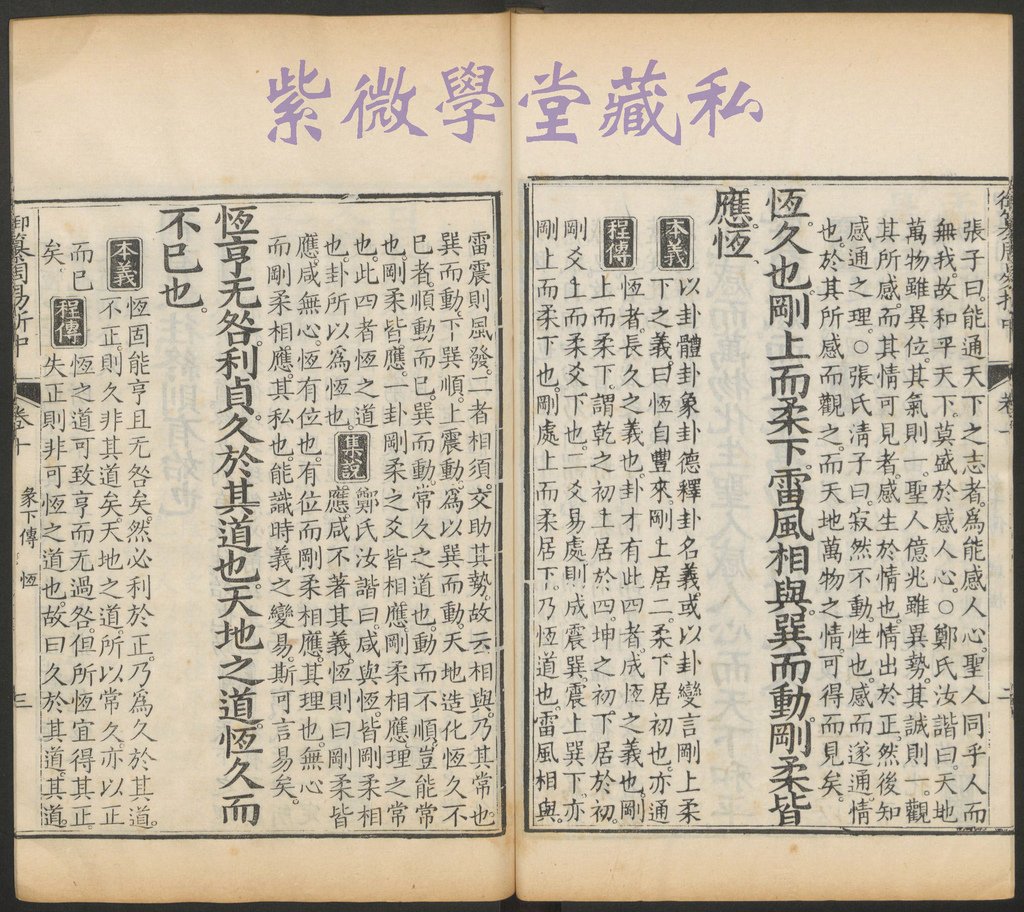 紫微學堂藏私
張子曰。能通天下之志者。爲能感人心。聖人同乎人而
無我。故和平天下。莫盛於感人心。○鄭氏汝諧曰。天地
萬物雖異位。其氣則一。聖人億兆雖異勢。其誠則一。觀
其所感。而其情可見者。感生於情也。情出於正。然後知
感通之理。○張氏清子曰。寂然不動。性也。感而遂通。情
也。於其所感而觀之。而天地萬物之情。可得而見矣。
恆。久也。剛上而柔下。雷風相與。巽而動。剛柔皆
應。恆。
本義 以卦體卦象卦德釋卦名義。或以卦變言剛上柔
下之義。曰恆自豐來。剛上居二。柔下居初也。亦通
程傳 恆者。長久之義也。卦才有此四者。成恆之義也。剛
上而柔下。謂乾之初上居於四。坤之初下居於初。
剛爻上而柔爻下也。二爻易處則成震巽。震上巽下。亦
剛上而柔下也。剛處上而柔居下。乃恆道也。雷風相與。
雷震則風發。二者相須。交助其勢。故云相與。乃其常也。
巽而動。下巽順。上震動。爲以巽而動。天地造化恆久不
已者。順動而已。巽而動。常久之道也。動而不順。豈能常
也。剛柔皆應。一卦剛柔之爻皆相應。剛柔相應。理之常
也。此四者恆之道
也。卦所以爲恆也。 集說 鄭氏汝諧曰。咸與恆。皆剛柔相
應。咸不著其義。恆則曰剛柔皆
應。咸無心。恆有位也。有位而剛柔相應。其理也。無心
而剛柔相應。其私也。能識時義之變易。斯可言易矣。
恆亨无咎利貞。久於其道也。天地之道。恆久而
不已也。
本義 恆固能亨且无咎矣。然必利於正。乃爲久於其道。
不正則久非其道矣。天地之道。所以常久。亦以正
而已
矣。 程傳 恆之道可致亨而无過咎。但所恆宜得其正。
失正則非可恆之道也。故曰久於其道。其道
御纂周易折中 卷十 彖下傳 恆 三